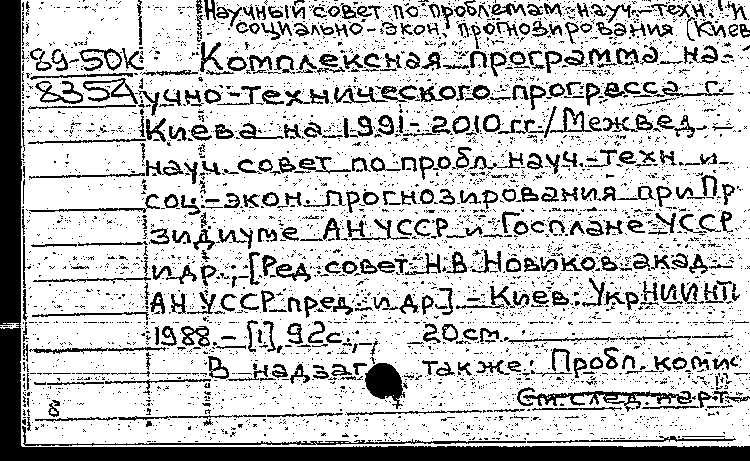 Научный совет по проблемам науч.-техн. и
социально-экон. прогнозирования (Киев
89-50к Комплексная программа на-
8354 учно-технического прогресса г.
Киева на 1991-2010 гг. / Межвед.
науч. совет по пробл. науч.-техн. и
соц.-экон. прогнозирования при Пр
зидиуме АН УССР и Госплане УССР
и др.; [Ред. совет: Н.В. Новиков акад.
АН УССР пред. и др.]. - Киев: УкрНИИНТИ
1988. - [1], 92 с.; 20 см.
В надзаг также: Пробл. комис
См. след. карт.